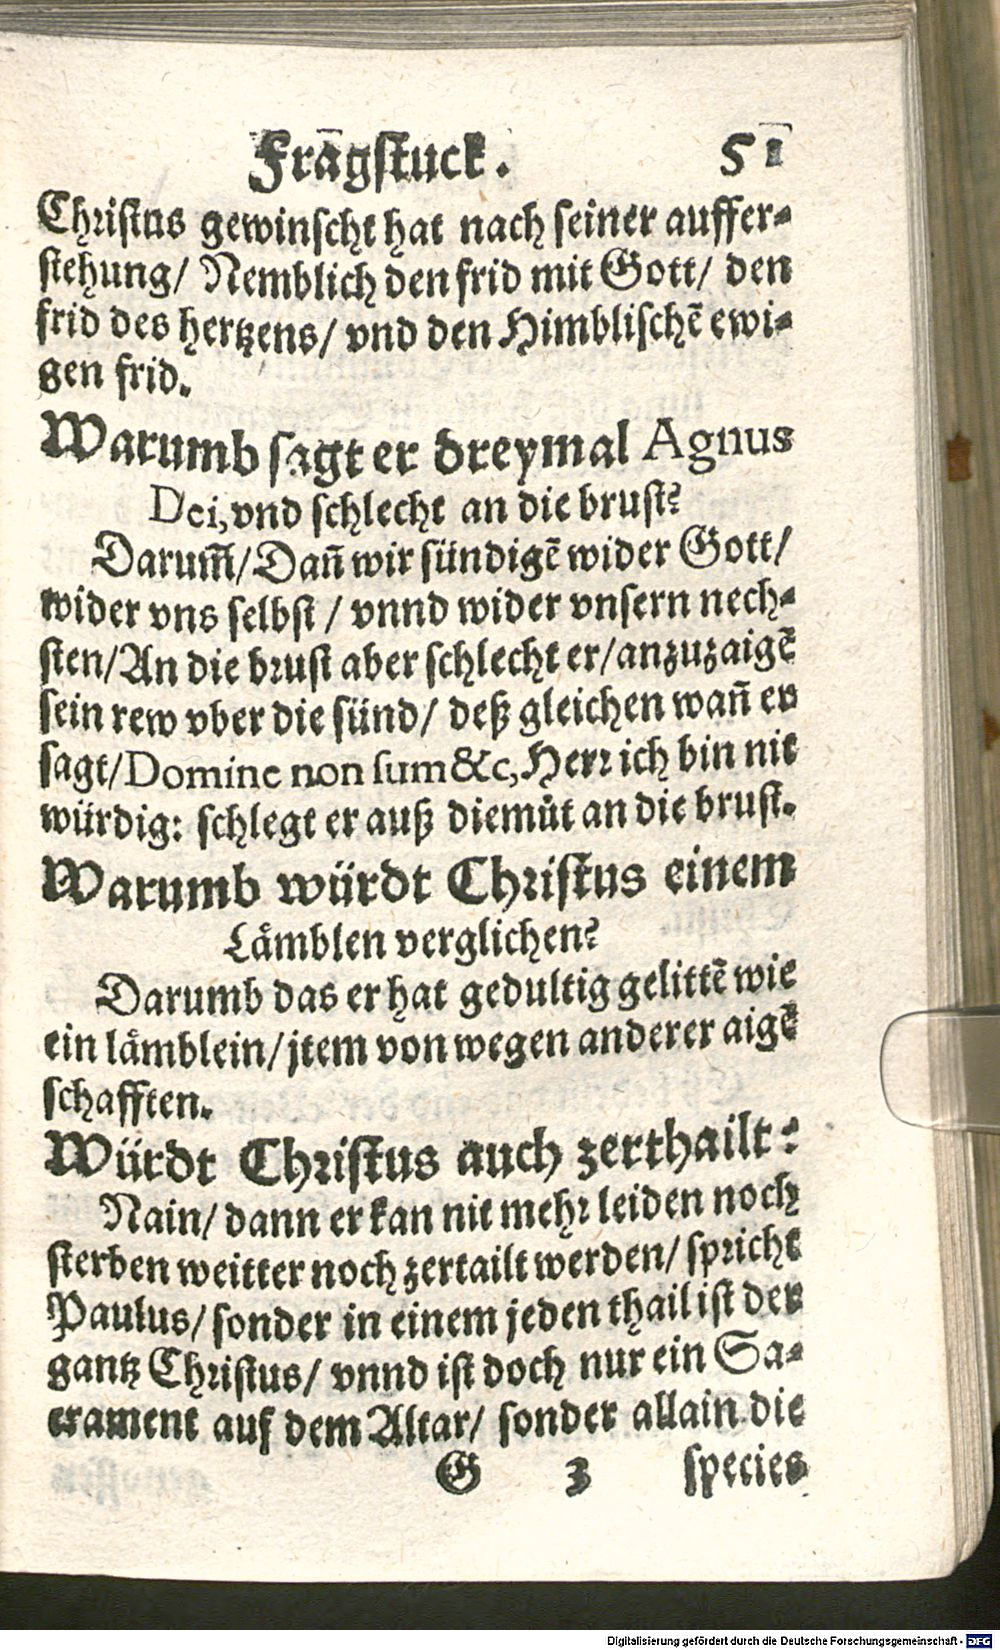 Fragstuck. 51
Christus gewinscht hat nach seiner auffer-
stehung/ Nemblich den frid mit Gott/ den
frid des hertzens/ vnd den Himblischẽ ewi-
gen frid.
Warumb sagt er dreymal Agnus
Dei, vnd schlecht an die brust?
Darum̃/ Dañ wir sündigẽ wider Gott/
wider vns selbst / vnnd wider vnsern nech-
sten/ An die brust aber schlecht er/ anzuzaigẽ
sein rew vber die sünd/ deß gleichen wañ er
sagt/ Domine non sum &c, Herr ich bin nit
würdig: schlegt er auß diemůt an die brust.
Warumb würdt Christus einem
Lämblen verglichen?
Darumb das er hat gedultig gelittẽ wie
ein lämblein/ jtem von wegen anderer aigẽ
schafften.
Würdt Christus auch zerthailt?
Nain/ dann er kan nit mehr leiden noch
sterben weitter noch zertailt werden/ spricht
Paulus/ sonder in einem jeden thail ist der
gantz Christus/ vnnd ist doch nur ein Sa-
crament auf dem Altar/ sonder allain die
G 3 species
Digitalisierung gefördert durch die Deutsche Forschungsgemeinschaft - DFG